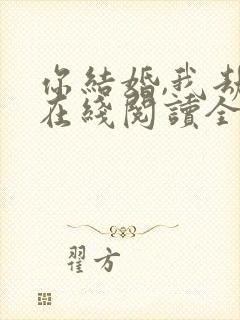 你結婚,我劫
在綫閱讀全
翟方